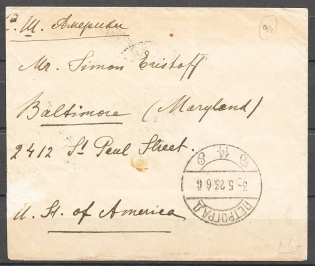 С. Ш. Америки
Mr. Simon Eristoff
Baltimore (Maryland)
2412 St Paul Street.
U. St. of America
ПЕТРОГРАД
3.5.23.6
93